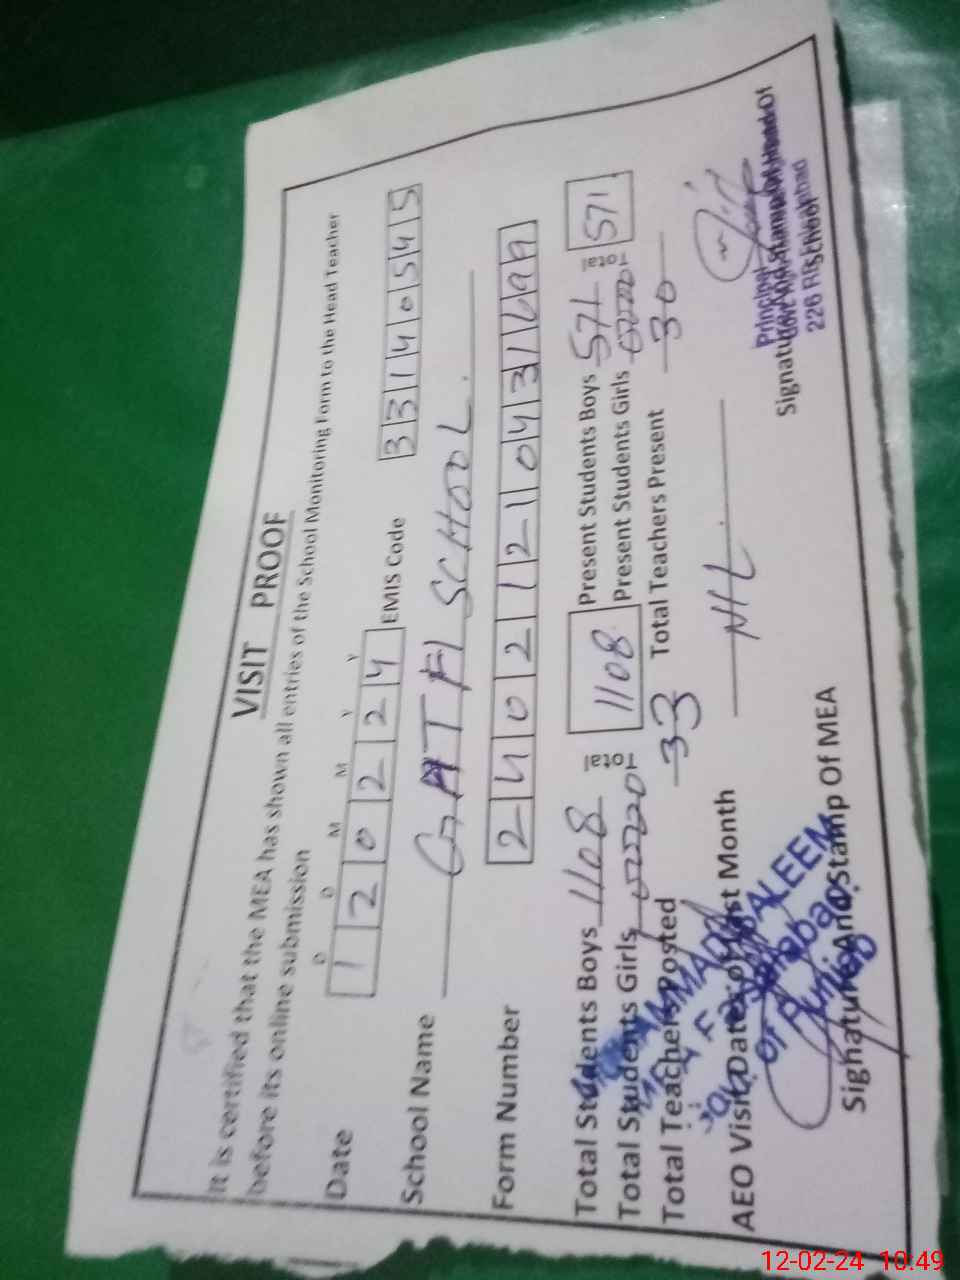 VISIT PROOF
It is certified that the MEA has shown all entries of the School Monitoring Form to the Head Teacher
before its online submission
D D M M Y Y
Date 1 2 0 2 2 4 EMIS Code 3 3 1 4 0 5 4 5
School Name GATTI SCHOOL.
Form Number 2 4 0 2 1 2 1 0 4 3 1 6
Total Students Boys 1108 Total 1108 Present Students Boys 571 Total 571
Total Students Girls Present Students Girls
Total Teachers Posted 33 Total Teachers Present 30
AEO Visit Date of Last Month NIL
Signature And Stamp Of MEA
Signature And Stamp Of Head Of
School
Principal
226 RB Faisalabad
SALEEM
12-02-24 10:49